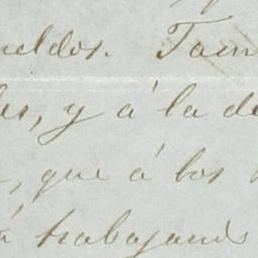 ueldos. Tam
les, y á la de
, que á los
á trabajando